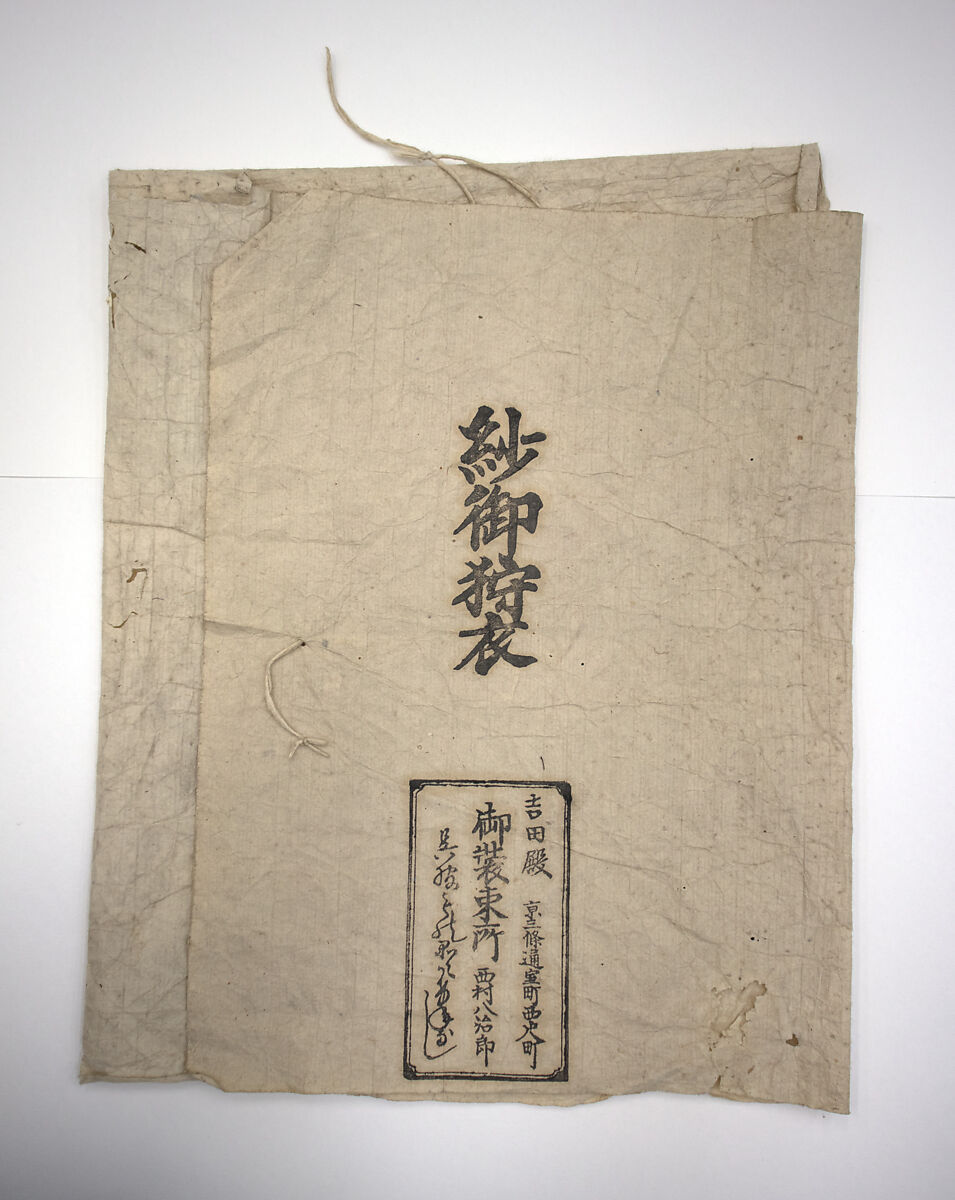 紗御狩衣
吉田殿 京三條通室町西入町
御裝束所 西村八治郎